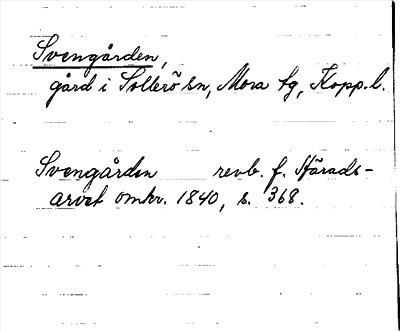 Svengården,
gård i Sollerö sn, Mora tg, Kopp. l.
Svengården revb. f. Härads-
arvet omkr. 1840, s. 368.